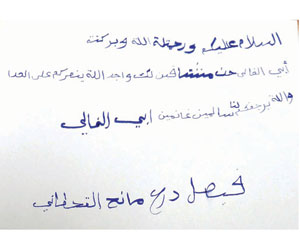 السلام عليكم ورحمة الله وبركته
أبي الغالي حنا مشتاقين لك واجد الله ينصركم على العدا
والله يرجعك لنا سالمين غانمين أبي الغالي
فيصل درع مانع القحطاني